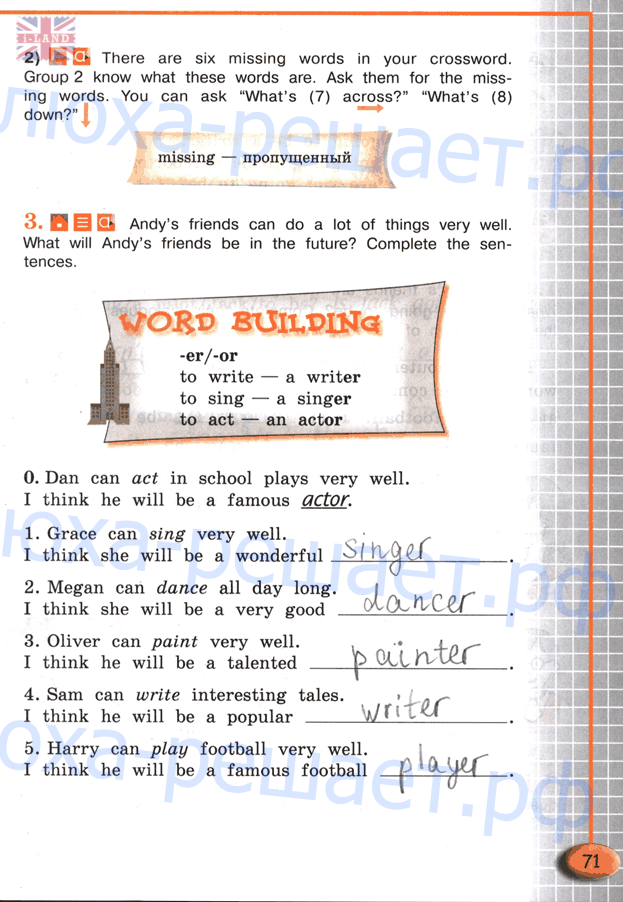 I-LAND
2) There are six missing words in your crossword.
Group 2 know what these words are. Ask them for the miss-
ing words. You can ask “What’s (7) across?” “What’s (8)
down?”
missing — пропущенный
3. Andy’s friends can do a lot of things very well.
What will Andy’s friends be in the future? Complete the sen-
tences.
WORD BUILDING
-er/-or
to write — a writer
to sing — a singer
to act — an actor
0. Dan can act in school plays very well.
I think he will be a famous actor.
1. Grace can sing very well.
I think she will be a wonderful singer.
2. Megan can dance all day long.
I think she will be a very good dancer.
3. Oliver can paint very well.
I think he will be a talented painter.
4. Sam can write interesting tales.
I think he will be a popular writer.
5. Harry can play football very well.
I think he will be a famous football player.
71
люха-решает.рф
люха-решает.рф
люха-решает.рф